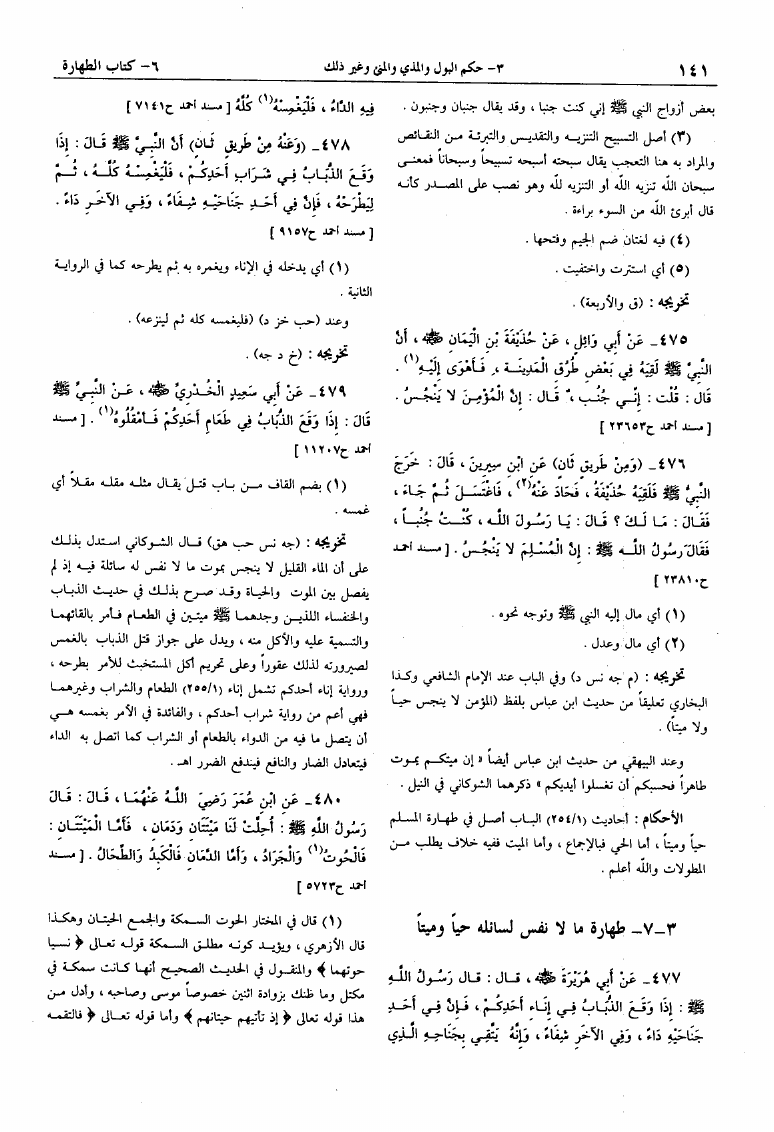 ١٤١
٣- حكم البول والمذي والمني وغير ذلك
٦- كتاب الطهارة
بعض أزواج النبي ﷺ إني كنت جنبا ، وقد يقال جنبان وجنبون .
(٣) أصل التسبيح التنزيه والتقديس والتبرئة من النقائص
والمراد به هنا التعجب يقال سبحته أسبحه تسبيحاً وسبحاناً فمعنى
سبحان الله تنزيه الله أو التنزيه لله وهو نصب على المصدر كأنه
قال أبرئ الله من السوء براءة .
(٤) فيه لغتان ضم الجيم وفتحها .
(٥) أي استترت واختفيت .
تخريجه : (ق والأربعة) .
٤٧٥- عَنْ أَبِي وَائِلٍ ، عَنْ حُذَيْفَةَ بْنِ الْيَمَانِ ﷺ ، أَنَّ
النَّبِيَّ ﷺ لَقِيَهُ فِي بَعْضِ طُرُقِ الْمَدِينَةِ ، فَأَهْوَى إِلَيْهِ(١) .
قَالَ : قُلْتُ : إِنِّي جُنُبٌ ، قَالَ : إِنَّ الْمُؤْمِنَ لا يَنْجُسُ .
[مسند احمد ح٢٣٦٥٣]
٤٧٦- (وَمِنْ طَرِيقٍ ثَانٍ) عَنِ ابْنِ سِيرِينَ ، قَالَ : خَرَجَ
النَّبِيُّ ﷺ فَلَقِيَهُ حُذَيْفَةُ ، فَحَادَ عَنْهُ(٢) ، فَاغْتَسَلَ ثُمَّ جَاءَ ،
فَقَالَ : مَا لَكَ ؟ قَالَ : يَا رَسُولَ اللهِ ، كُنْتُ جُنُباً ،
فَقَالَ رَسُولُ اللهِ ﷺ : إِنَّ الْمُسْلِمَ لا يَنْجُسُ . [مسند احمد
ح٢٣٨١٠]
(١) أي مال إليه النبي ﷺ وتوجه نحوه .
(٢) أي مال وعدل .
تخريجه : (م جه نس د) وفي الباب عند الإمام الشافعي وكذا
البخاري تعليقاً من حديث ابن عباس بلفظ (المؤمن لا ينجس حياً
ولا ميتاً) .
وعند البيهقي من حديث ابن عباس أيضاً « إن ميتكم يموت
طاهراً فحسبكم أن تغسلوا أيديكم » ذكرهما الشوكاني في النيل .
الأحكام : أحاديث (٢٥٤/١) الباب أصل في طهارة المسلم
حياً وميتاً ، أما الحي فبالإجماع ، وأما الميت ففيه خلاف يطلب من
المطولات والله أعلم .
٣-٧- طهارة ما لا نفس لسائله حياً وميتاً
٤٧٧- عَنْ أَبِي هُرَيْرَةَ ، قال : قال رَسُولُ اللهِ
ﷺ : إِذَا وَقَعَ الذُّبَابُ فِي إِنَاءِ أَحَدِكُمْ ، فَإِنَّ فِي أَحَدِ
جَنَاحَيْهِ دَاءً ، وَفِي الآخَرِ شِفَاءً ، وَإِنَّهُ يَتَّقِي بِجَنَاحِهِ الَّذِي
فِيهِ الدَّاءُ ، فَلْيَغْمِسْهُ(١) كُلَّهُ [مسند احمد ح٧١٤١]
٤٧٨- (وَعَنْهُ مِنْ طَرِيقٍ ثَانٍ) أَنَّ النَّبِيَّ ﷺ قَالَ : إِذَا
وَقَعَ الذُّبَابُ فِي شَرَابِ أَحَدِكُمْ ، فَلْيَغْمِسْهُ كُلَّهُ ، ثُمَّ
لِيَطْرَحْهُ ، فَإِنَّ فِي أَحَدِ جَنَاحَيْهِ شِفَاءً ، وَفِي الآخَرِ دَاءً .
[مسند احمد ح٩١٥٧]
(١) أي يدخله في الإناء ويغمره به ثم يطرحه كما في الرواية
الثانية .
وعند (حب خز د) (فليغمسه كله ثم لينزعه) .
تخريجه : (خ د جه) .
٤٧٩- عَنْ أَبِي سَعِيدٍ الْخُدْرِيِّ ، عَنِ النَّبِيِّ ﷺ
قَالَ : إِذَا وَقَعَ الذُّبَابُ فِي طَعَامِ أَحَدِكُمْ فَامْقُلُوهُ(١) . [مسند
احمد ح١١٢٠٧]
(١) بضم القاف من باب قتل يقال مثله مقله مقلاً أي
غمسه .
تخريجه : (جه نس حب هق) قال الشوكاني استدل بذلك
على أن الماء القليل لا ينجس بموت ما لا نفس له سائلة فيه إذ لم
يفصل بين الموت والحياة وقد صرح بذلك في حديث الذباب
والخنفساء اللذين وجدهما ﷺ ميتين في الطعام فأمر بالقائهما
والتسمية عليه والأكل منه ، ويدل على جواز قتل الذباب بالغمس
لصيرورته لذلك عقوراً وعلى تحريم أكل المستخبث للأمر بطرحه ،
ورواية إناء أحدكم تشمل إناء (٢٥٥/١) الطعام والشراب وغيرهما
فهي أعم من رواية شراب أحدكم ، والفائدة في الأمر بغمسه هي
أن يتصل ما فيه من الدواء بالطعام أو الشراب كما اتصل به الداء
فيتعادل الضار والنافع فيندفع الضرر اهـ .
٤٨٠- عَنِ ابْنِ عُمَرَ رَضِيَ اللهُ عَنْهُمَا ، قَالَ : قَالَ
رَسُولُ اللهِ ﷺ : أُحِلَّتْ لَنَا مَيْتَتَانِ وَدَمَانِ ، فَأَمَّا الْمَيْتَتَانِ :
فَالْحُوتُ(١) وَالْجَرَادُ ، وَأَمَّا الدَّمَانِ فَالْكَبِدُ وَالطِّحَالُ . [مسند
احمد ح٥٧٢٣]
(١) قال في المختار الحوت السمكة والجمع الحيتان وهكذا
قال الأزهري ، ويؤيد كونه مطلق السمكة قوله تعالى ﴿ نسيا
حوتهما ﴾ والمنقول في الحديث الصحيح أنها كانت سمكة في
مكتل وما ظنك بزوادة اثنين خصوصاً موسى وصاحبه ، وأدل من
هذا قوله تعالى ﴿ إذ تأتيهم حيتانهم ﴾ وأما قوله تعالى ﴿ فالتقمه